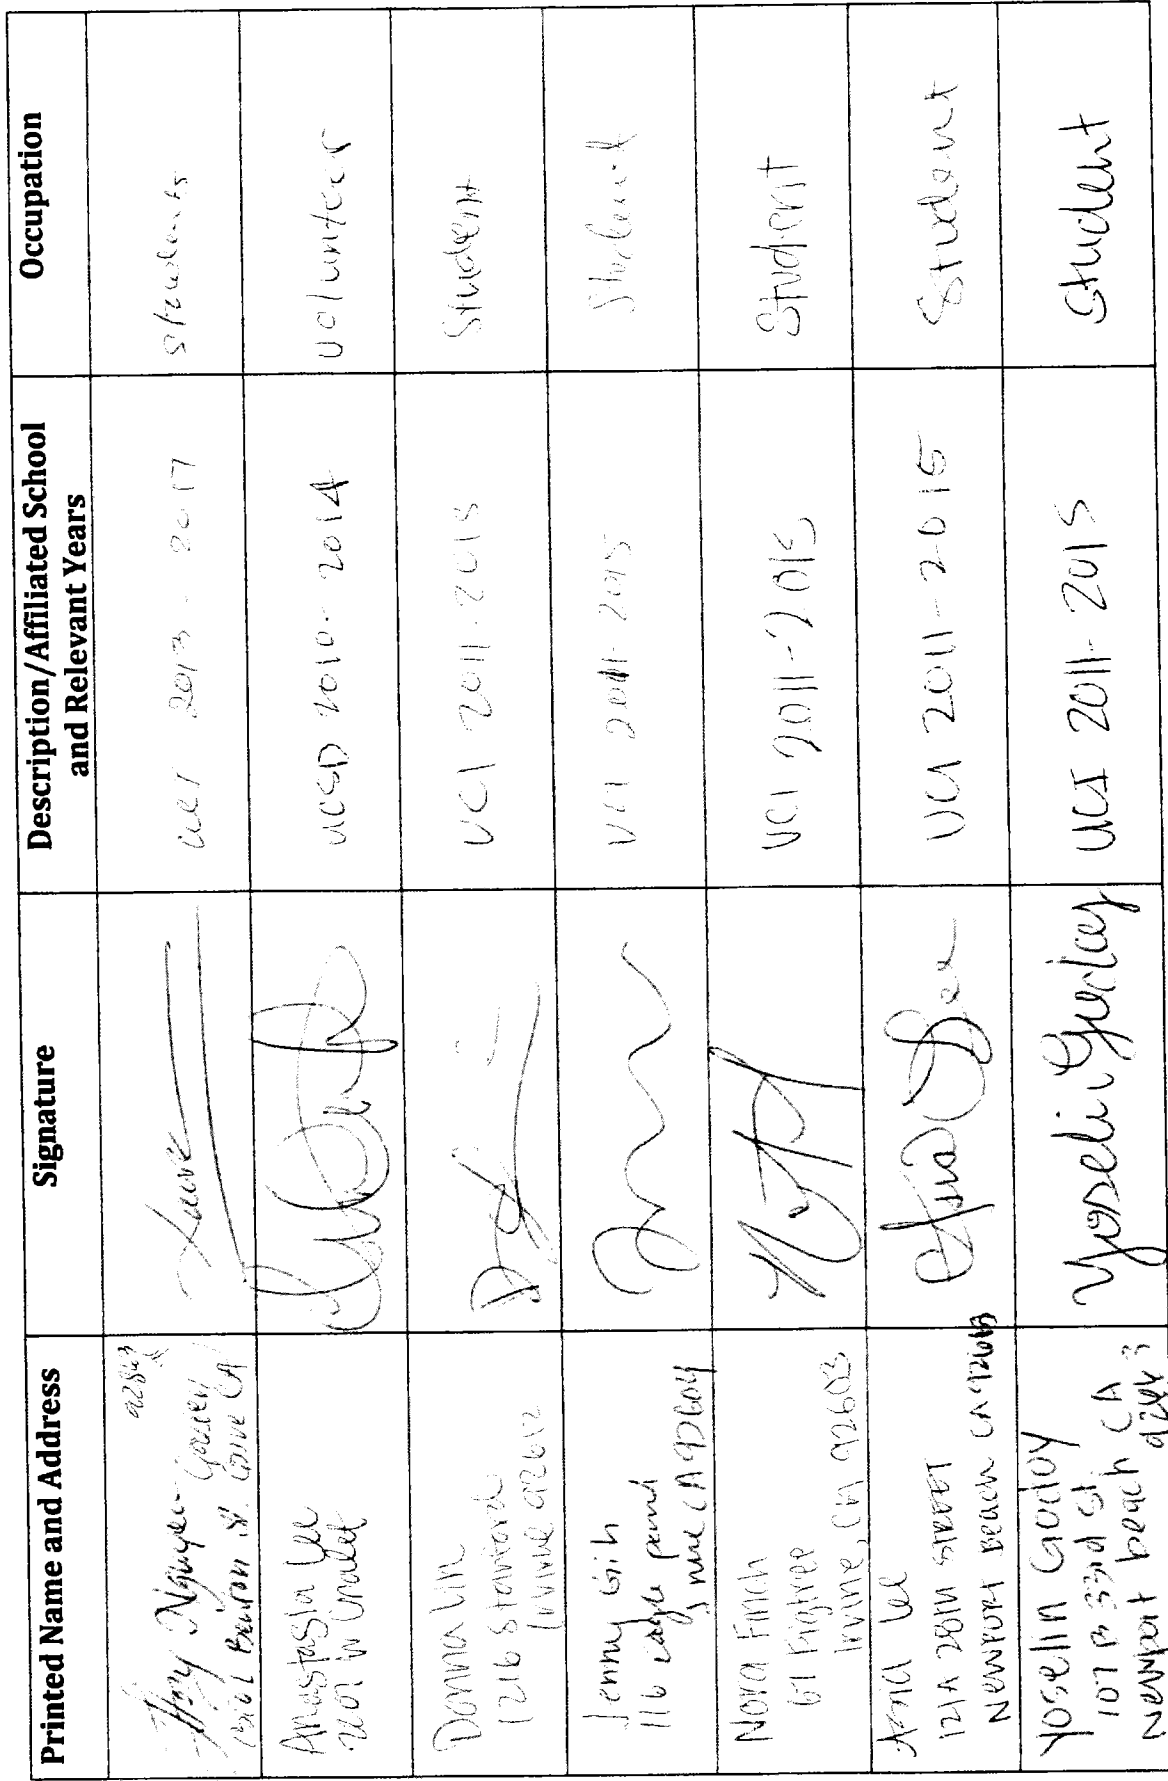 Printed Name and Address
Signature
Description/Affiliated School
and Relevant Years
Occupation
Nguyen
92843
St. Grove CA
UCI 2013 - 2017
students
Anastasia Lee
UCSD 2010 - 2014
volunteer
Donna Lin
1216 Stanford
Irvine 92612
UCI 2011-2015
Student
Jenny Gih
116
CA 92604
UCI 2011-2015
Student
Nora Finch
67 Figtree
Irvine, CA 92603
UCI 2011-2015
Student
Lee
121A 28TH STREET
NEWPORT BEACH CA
UCI 2011-2015
Student
Yoselin Godoy
107 B 33rd St.
Newport beach CA
Yoselin Godoy
UCI 2011-2015
Student